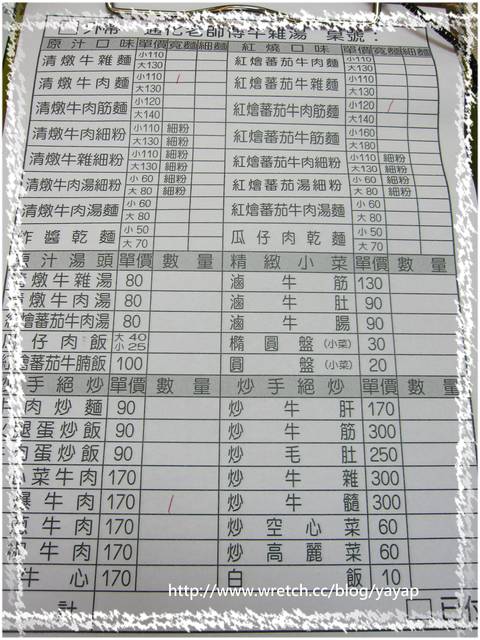 通化老師傅牛雜湯 桌號：
原汁口味 單價 寬麵 細麵 紅燒口味 單價 寬麵 細麵
清燉牛雜麵 小110 大130 紅燴蕃茄牛肉麵 小110 大130
清燉牛肉麵 小110 大130 紅燴蕃茄牛雜麵 小110 大130
清燉牛肉筋麵 小120 大140 紅燴蕃茄牛肉筋麵 小120 大140
清燉牛肉細粉 小110 細粉 大130 細粉 紅燴蕃茄牛筋麵 小160 大180
清燉牛雜細粉 小110 細粉 大130 細粉 紅燴蕃茄牛肉細粉 小110 細粉 大130 細粉
清燉牛肉湯細粉 小60 細粉 大80 細粉 紅燴蕃茄湯細粉 小60 細粉 大80 細粉
清燉牛肉湯麵 小60 大80 紅燴蕃茄牛肉湯麵 小60 大80
炸醬乾麵 小50 大70 瓜仔肉乾麵 小50 大70
原汁湯頭 單價 數量 精緻小菜 單價 數量
清燉牛雜湯 80 滷牛筋 130
清燉牛肉湯 80 滷牛肚 90
紅燴蕃茄牛肉湯 80 滷牛腸 90
瓜仔肉飯 大40 小25 橢圓盤(小菜) 30
紅燴蕃茄牛腩飯 100 圓盤(小菜) 20
炒手絕炒 單價 數量 炒手絕炒 單價 數量
牛肉炒麵 90 炒牛肝 170
火腿蛋炒飯 90 炒牛筋 300
肉蛋炒飯 90 炒毛肚 250
小菜牛肉 170 炒牛雜 300
爆牛肉 170 炒牛髓 300
牛肉 170 炒空心菜 60
牛肉 170 炒高麗菜 60
牛心 170 白飯 10
計 □已付
http://www.wretch.cc/blog/yayap